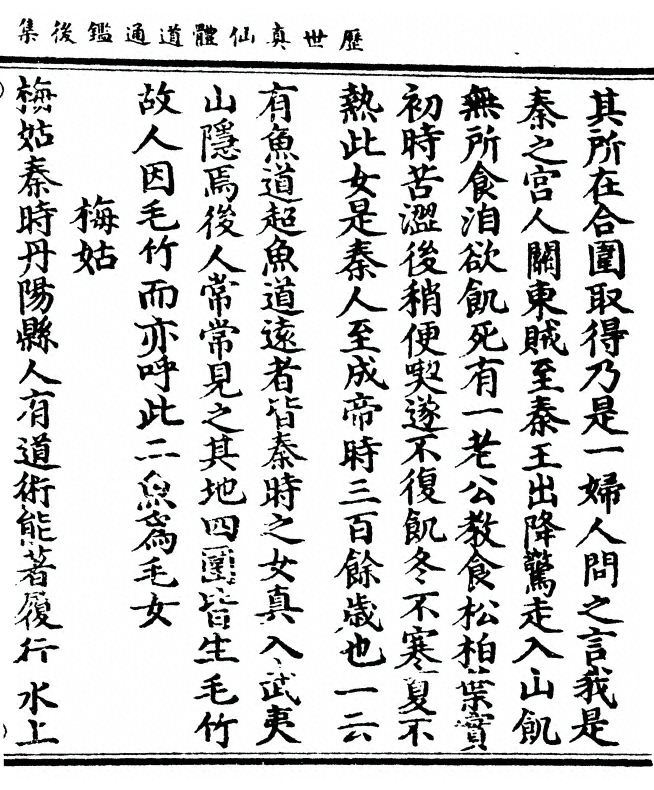 歷世真仙體道通鑑後集
其所在合圍取得乃是一婦人問之言我是
秦之宮人關東賊至秦王出降驚走入山飢
無所食洎欲飢死有一老公教食松柏葉實
初時苦澀後稍便喫遂不復飢冬不寒夏不
熱此女是秦人至成帝時三百餘歲也一云
有魚道超魚道遠者皆秦時之女真入武夷
山隱焉後人常常見之其地四圍皆生毛竹
故人因毛竹而亦呼此二魚爲毛女
梅姑
梅姑秦時丹陽縣人有道術能著履行水上